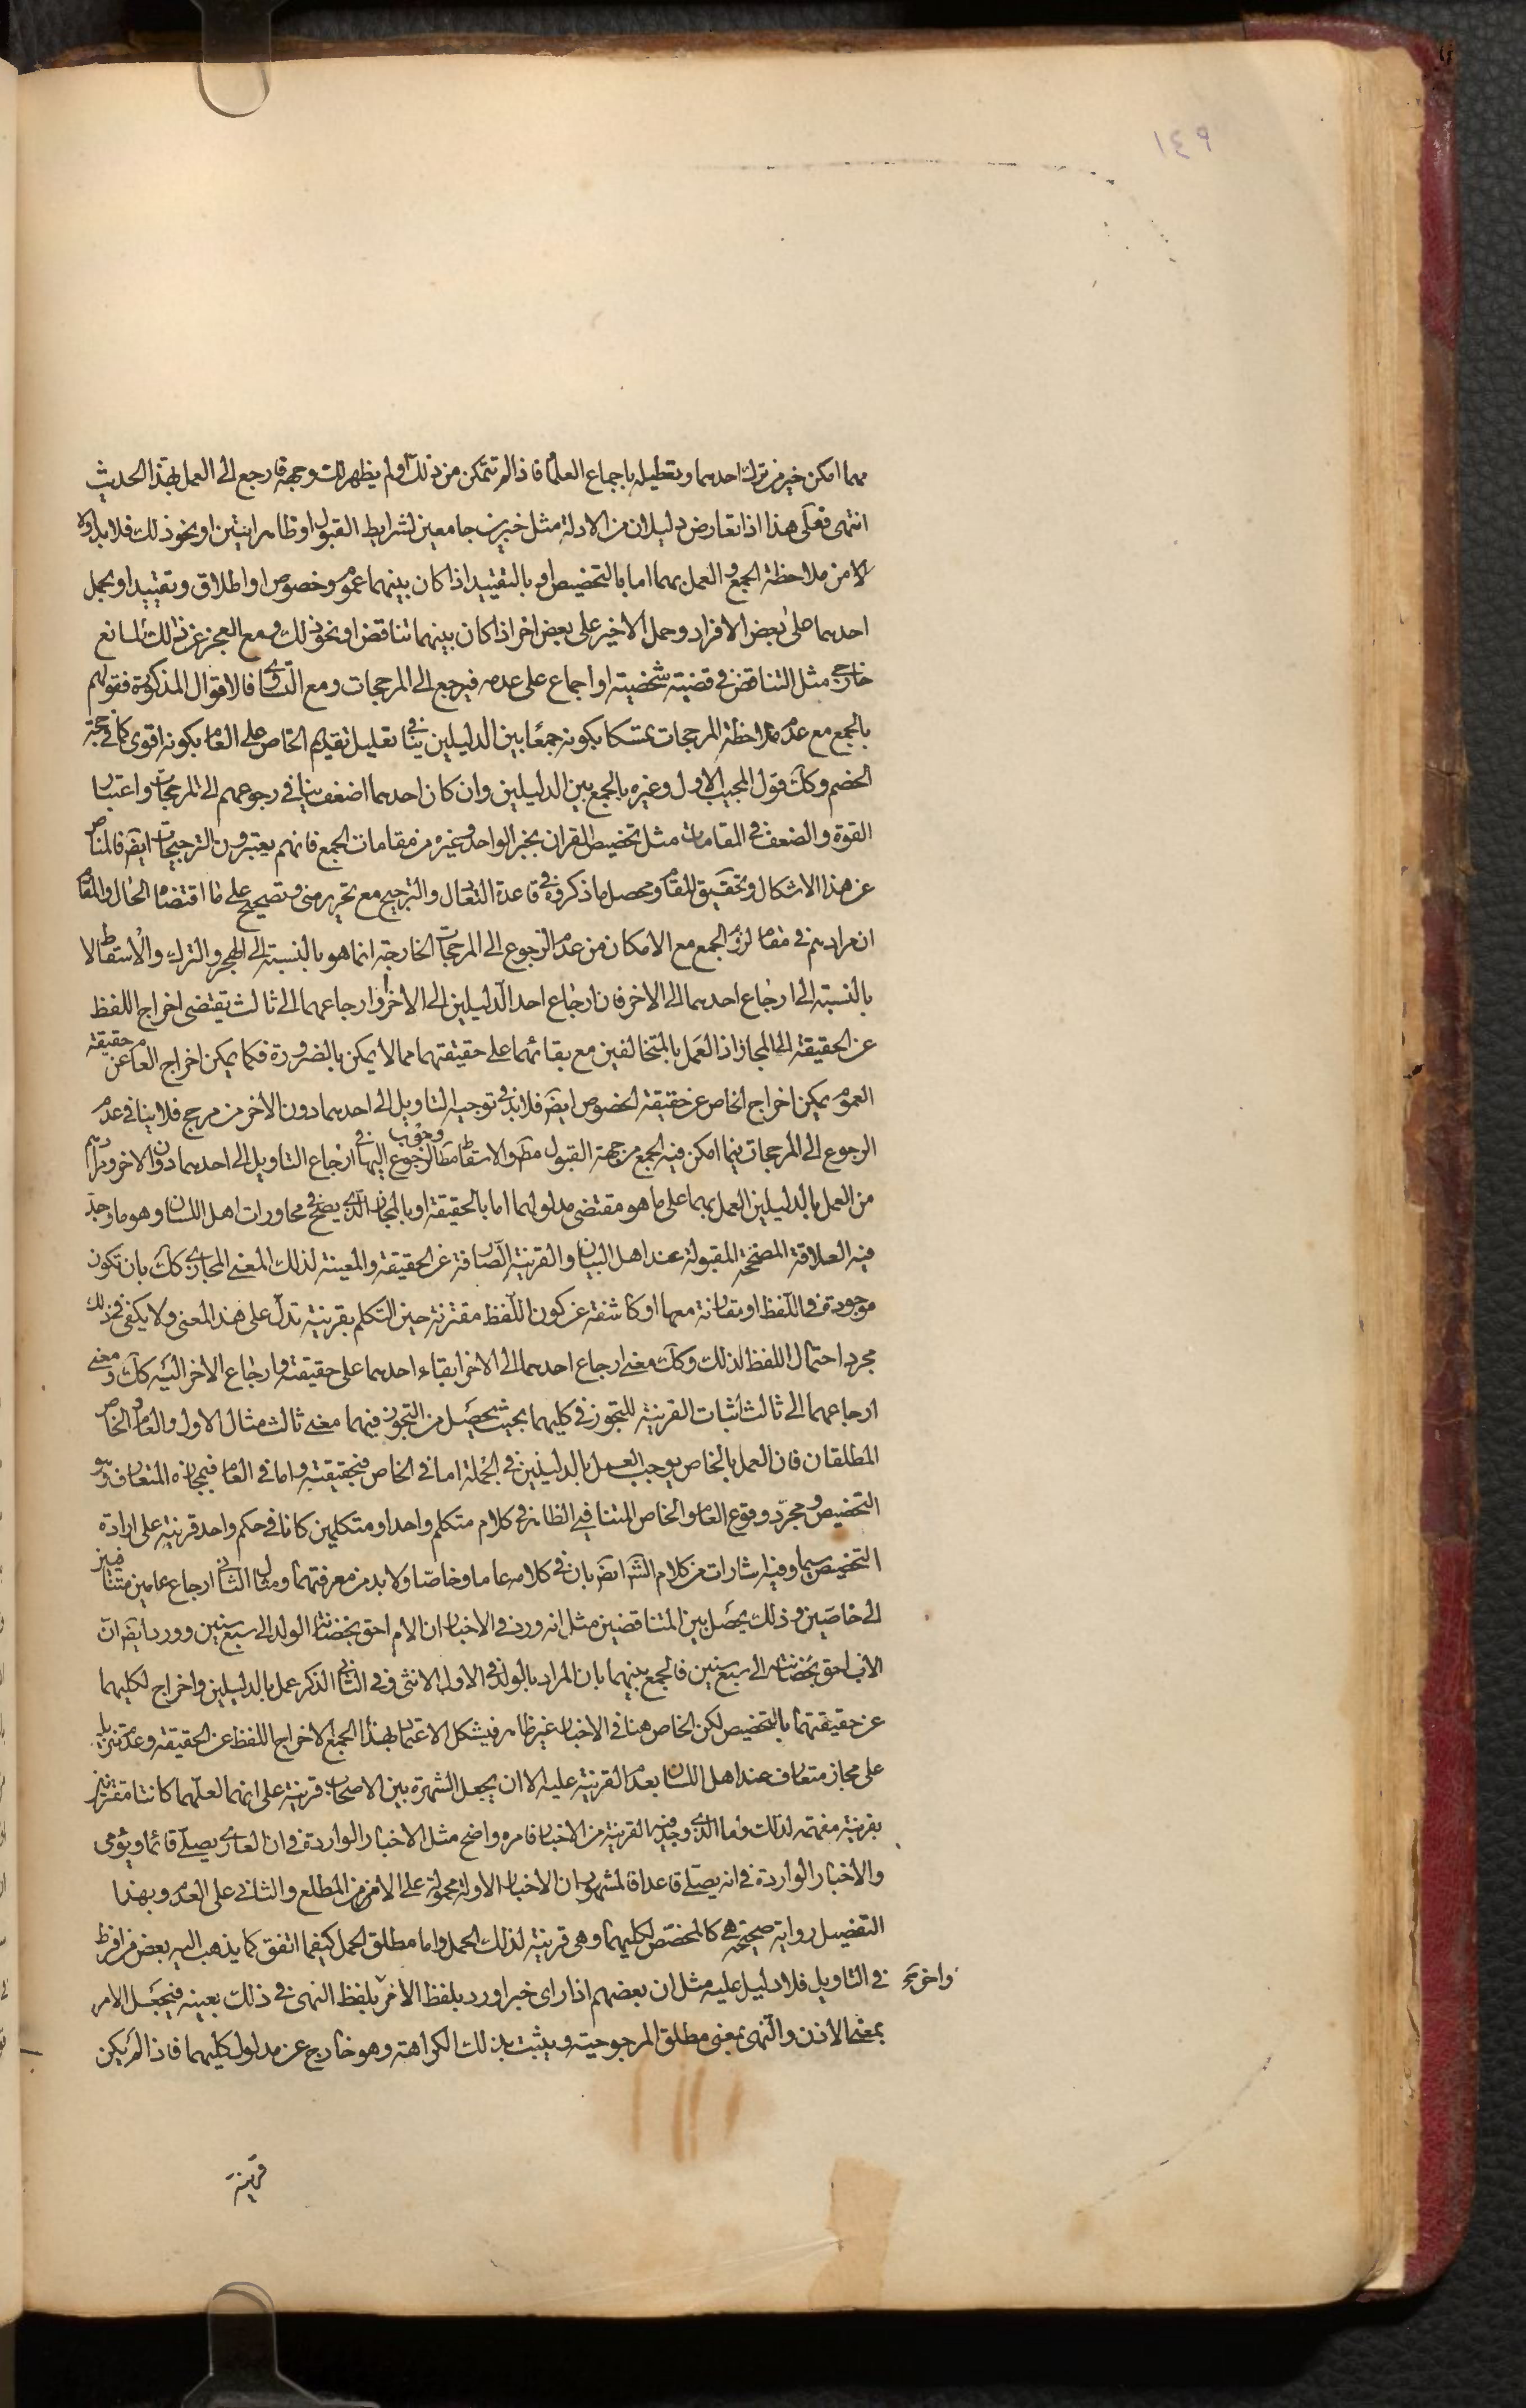 ١٤٩
مهما امكن خير من ترك احدهما وتعطيله باجماع العلماء فاذا لم تتمكن من ذلك او لم يظهر لك وجهه فارجع الى العمل بهذا الحديث
انتهى فعلى هذا اذا تعارض دليلان من الادلة مثل خبرين جامعين لشرايط القبول او ظاهر ايتين او نحو ذلك فلا بد اولا
الا من ملاحظة الجمع والعمل بهما اما بالتخصيص او بالتقييد اذا كان بينهما عموم وخصوص او اطلاق وتقييد او بحمل
احدهما على بعض الافراد وحمل الاخير على بعض اخر اذا كان بينهما تناقض او نحو ذلك ومع العجز عن ذلك لمانع
خارجي مثل التناقض في قضية شخصية او اجماع على عدمه فيرجع الى المرجحات ومع التساوي فالاقوال المذكورة فقولهم
بالجمع مع عدم ملاحظة المرجحات تمسكا بكونه جمعا بين الدليلين ينافي تعليل تقديم الخاص على العام بكونه اقوى كما في حجة
الخصم وكك قول المجيب الاول وغيره بالجمع بين الدليلين وان كان احدهما اضعف ينافي رجوعهم الى المرجحات واعتبار
القوة والضعف في المقامات مثل تخصيص القران بخبر الواحد وغيره من مقامات الجمع فانهم يعتبرون الترجيحات ايضا فالمناص
عن هذا الاشكال وتحقيق المقام ومحصل ما ذكروه في قاعدة التعادل والترجيح مع تحرير مني وتصحيح على ما اقتضاه الحال والمقام
ان مرادهم في مقام لزوم الجمع مع الامكان من عدم الرجوع الى المرجحات الخارجة انما هو بالنسبة الى الهجر والترك والاسقاط لا
بالنسبة الى ارجاع احدهما الى الاخر فان ارجاع احد الدليلين الى الاخر او ارجاعهما الى ثالث يقتضي اخراج اللفظ
عن الحقيقة الى المجاز اذ العمل بالمتخالفين مع بقائهما على حقيقتهما مما لا يمكن بالضرورة فكما يمكن اخراج العام عن حقيقة
العموم يمكن اخراج الخاص عن حقيقة الخصوص ايضا فلا بد في توجيه التاويل الى احدهما دون الاخر من مرجح فلا ينافي عدم
الرجوع الى المرجحات فيما امكن فيه الجمع من جهة القبول مط والاسقاط مط الرجوع وجوب اليها في ارجاع التاويل الى احدهما دون الاخر ومرادهم
من العمل بالدليلين العمل بهما على ما هو مقتضى مدلولهما اما بالحقيقة او بالمجاز الذي يصح في محاورات اهل اللسان وهو ما وجد
فيه العلاقة المصححة المقبولة عند اهل البيان والقرينة الصارفة عن الحقيقة والمعينة لذلك المعنى المجازي كك بان تكون
موجودة في اللفظ او مقارنة معها او كاشفة عن كون اللفظ مقترنة حين التكلم بقرينة تدل على هذا المعنى ولا يكفي في ذلك
مجرد احتمال اللفظ لذلك وكك معنى ارجاع احدهما الى الاخر ابقاء احدهما على حقيقته وارجاع الاخر اليه كك ومعنى
ارجاعهما الى ثالث اثبات القرينة للتجوز في كليهما بحيث يحصل من التجوز فيهما معنى ثالث مثال الاول والعام والخاص
المطلقان فان العمل بالخاص يوجب العمل بالدليلين في الجملة اما في الخاص فبحقيقته واما في العام فبمجازه المتعارف وهو
التخصيص ومجرد وقوع العام والخاص المتنافي الظاهر في كلام متكلم واحد او متكلمين كانا في حكم واحد قرينة على ارادة
التخصيص سيما وفيه اشارات من كلام الش ايضا بان في كلامه عاما وخاصا ولا بد من معرفتهما ومثال الثاني ارجاع عامين متناقضين
الى خاصين وذلك يحصل بين المتناقضين مثل انه ورد في الاخبار ان الام احق بحضانة الولد الى سبع سنين وورد ايضا ان
الاب احق بحضانته الى سبع سنين فالجمع بينهما بان المراد بالولد في الاول الانثى وفي الثاني الذكر عمل بالدليلين واخراج لكليهما
عن حقيقتهما بالتخصيص لكن الخاص هنا في الاخبار غير ظاهر فيشكل الاعتماد بهذا الجمع لاخراج اللفظ عن الحقيقة وعدم تنزيله
على مجاز متعارف عند اهل اللسان بعدم القرينة عليه الا ان يجعل الشهرة بين الاصحاب قرينة على انهما لعلهما كانتا مقترنتين
بقرينة مفهمة لذلك واما الذي وجد فيه القرينة من الاخبار فامره واضح مثل الاخبار الواردة في ان العاري يصلي قائما ويؤمي
والاخبار الواردة في انه يصلي قاعدا فالمشهور ان الاخبار الاولة محمولة على الامن من المطلع والثاني على العدم وبهذا
التفصيل رواية صحيحة هي كالمخصص لكليهما وهي قرينة لذلك الحمل واما مطلق الحمل كيفما اتفق كما يذهب اليه بعض من افرط
في التاويل فلا دليل عليه مثل ان بعضهم اذا راى خبرا ورد بلفظ الامر بلفظ النهي في ذلك بعينه فيجعل الامر
واخر
بمعنى الاذن والنهي بمعنى مطلق المرجوحية ويثبت بذلك الكراهة وهو خارج عن مدلول كليهما فاذا لم يكن
قرينة